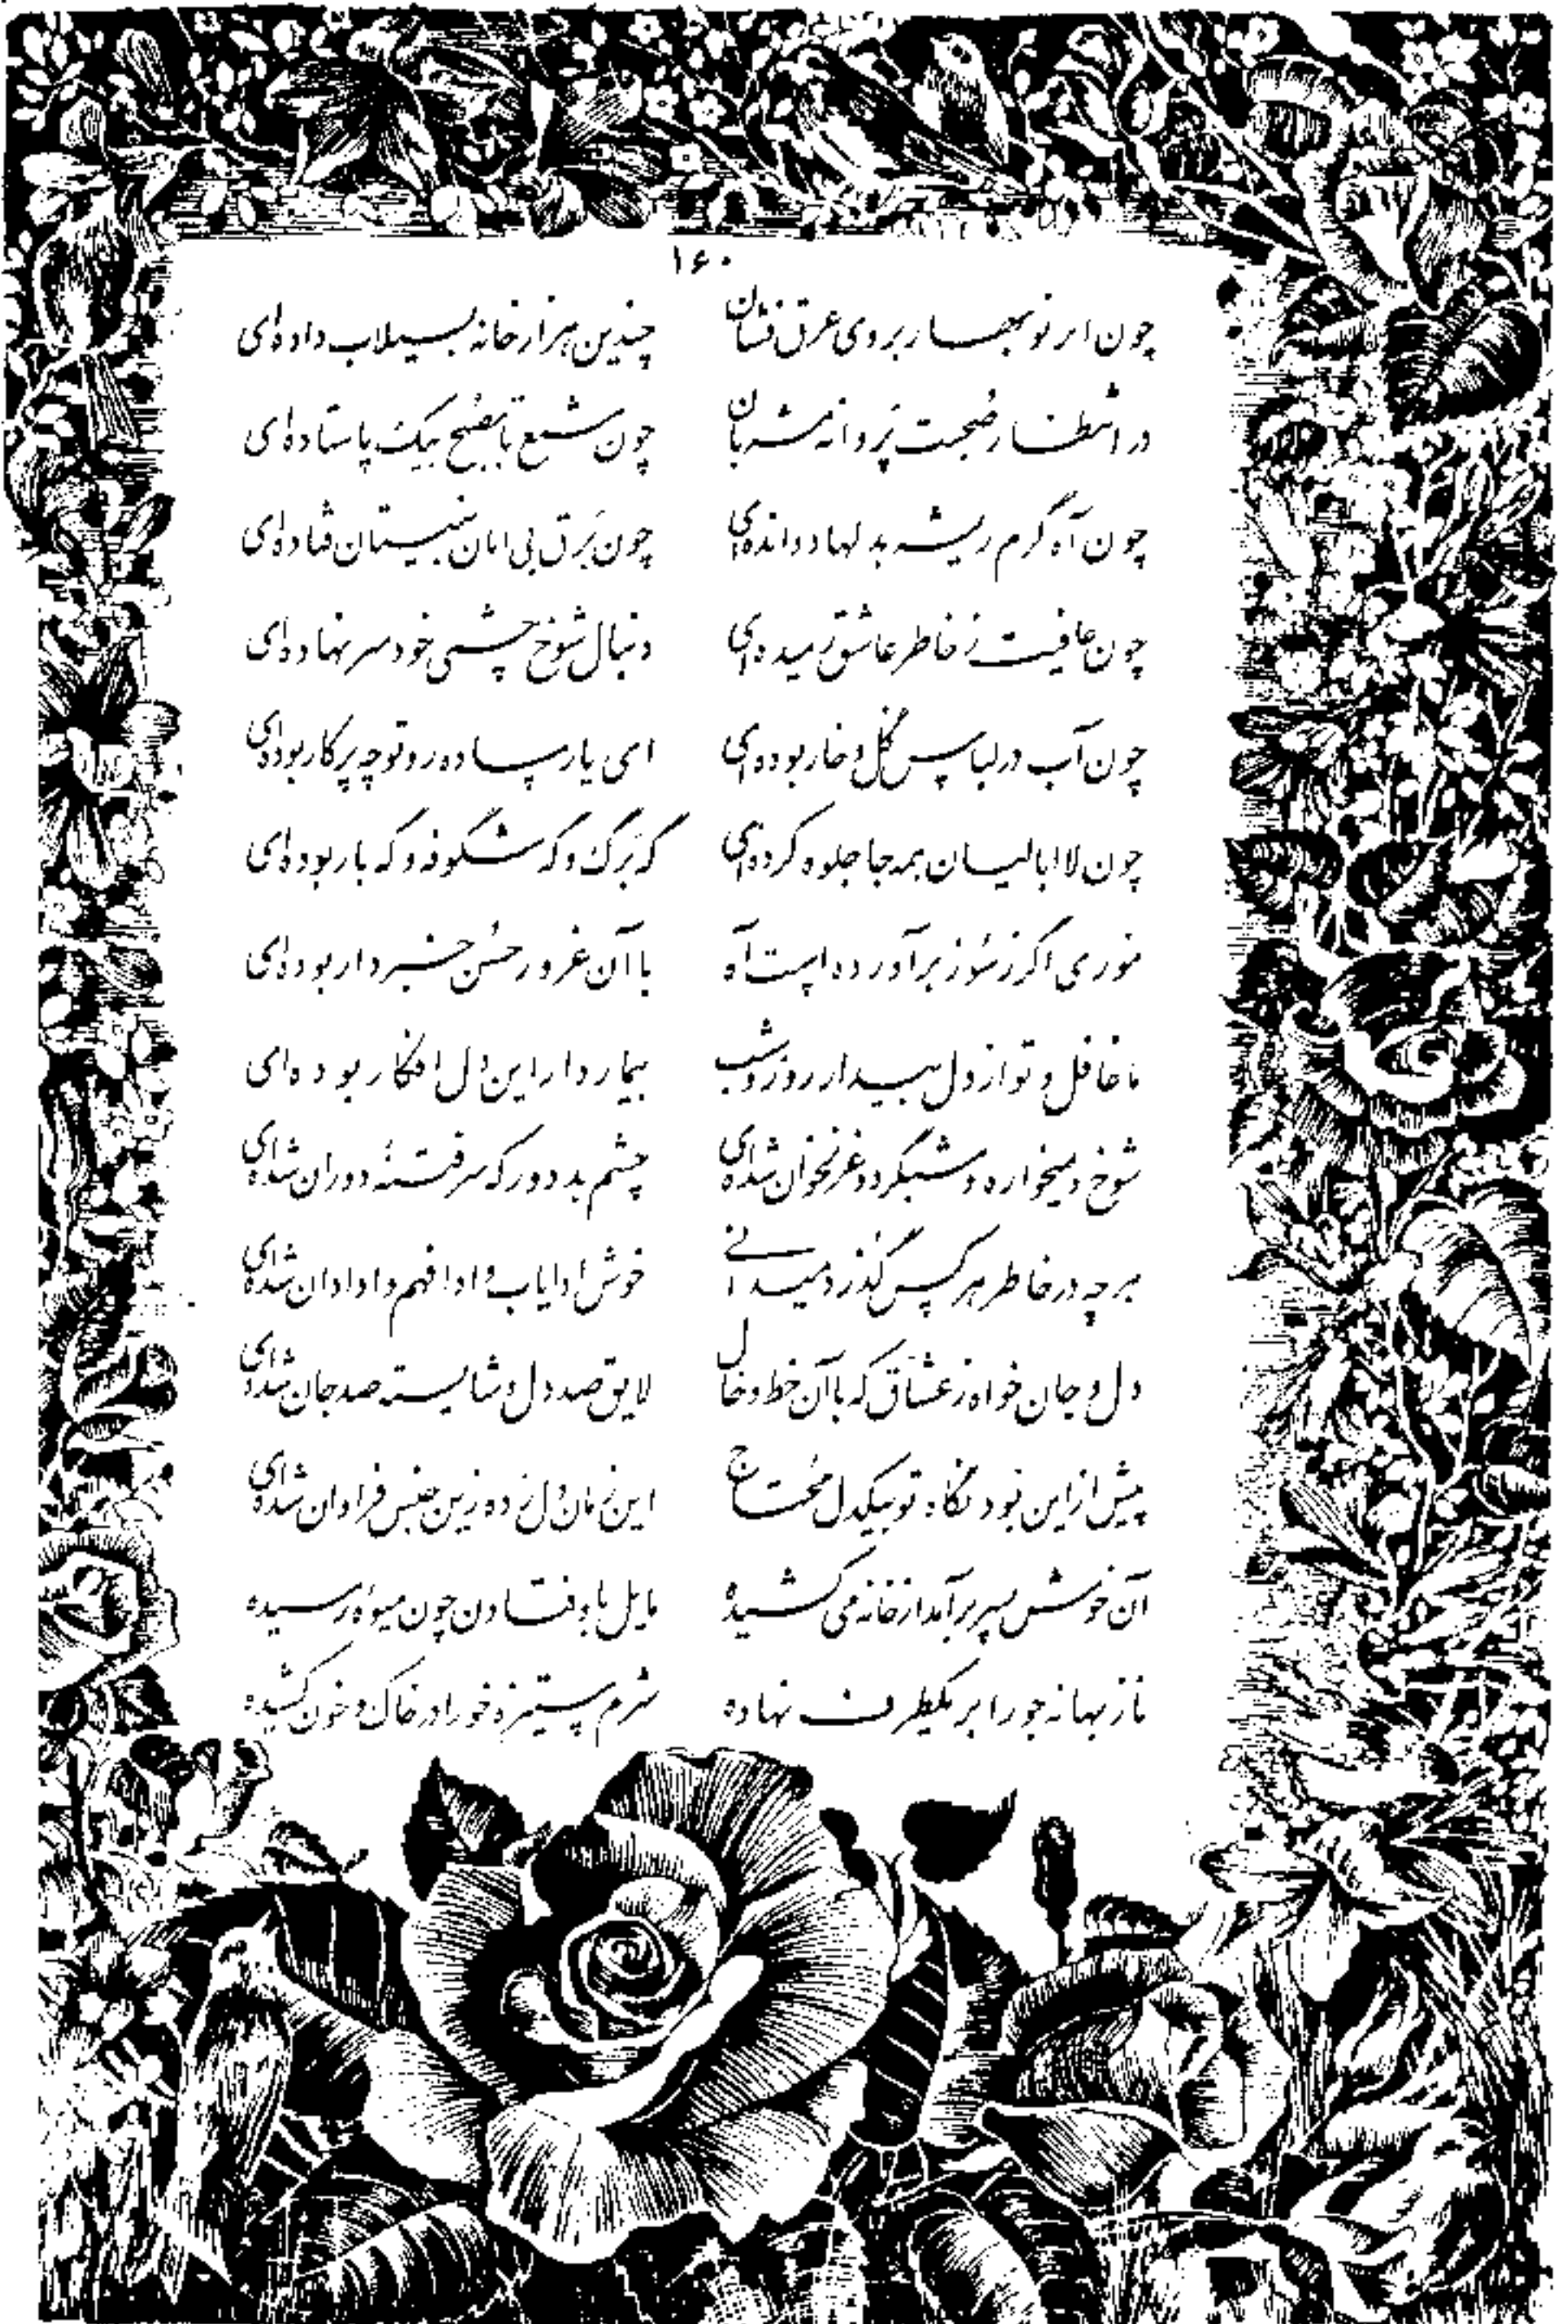 ۱۶۰
چون ابر نوبهار بروی عرق فشان چندین هزار خانه بسیلاب داده‌ای
در انتظار صُحبت پَروانه مشربان چون شمع تا بصُبح بیک پا ستاده‌ای
چون آه گرم ریشه بدلها دوانده‌ای چون بَرق بی امان بنیستان فتاده‌ای
چون عافیت ز خاطر عاشق رمیده‌ای دنبال شوخ چشمی خود سر نهاده‌ای
چون آب در لباس گل و خار بوده‌ای ای یار ساده رو تو چه پرکار بوده‌ای
چون لاابالیان همه جا جلوه کرده‌ای گه بَرگ و گه شگوفه و گه بار بوده‌ای
موری اگر ز سُوز برآورده است آه با آن غرور حُسن خبردار بوده‌ای
ما غافل و تو از دل بیدار روز و شب بیماردار این دل افکار بوده‌ای
شوخ و میخواره و شبگرد و غزلخوان شده‌ای چشم بد دور که سرفتنهٔ دوران شده‌ای
هر چه در خاطر هر کس گُذرد میدانی خوش ادایاب و ادا فهم و ادادان شده‌ای
دل و جان خواه ز عشاق که با آن خط و خال لایق صد دل و شایسته صد جان شده‌ای
پیش از این نبود نگاه تو بیکدل مُحتاج این زمان دل زده زین جنس فراوان شده‌ای
آن خوش پسر برآمد از خانه می کشیده مایل باوفتادن چون میوهٔ رسیده
ناز بهانه جو را بر یکطرف نهاده شرم ستیزه خو را در خاک و خون کشیده